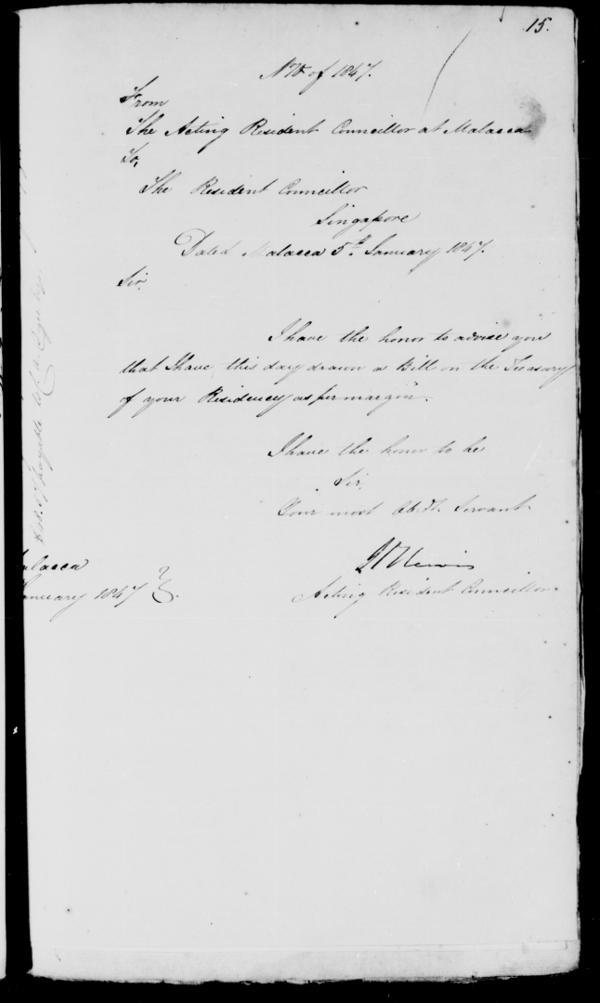 15.
of 1847.
From
The Acting Resident Councillor at Malacca
To,
The Resident Councillor
Singapore
Dated Malacca 5th January 1847.
Sir,
I have the honor to advise you
that I have this day drawn a Bill on the Treasury
of your Residency as per margin.
I have the honor to be
Sir,
Your most Obdt. Servant
Acting Resident Councillor
alacca
anuary 1847